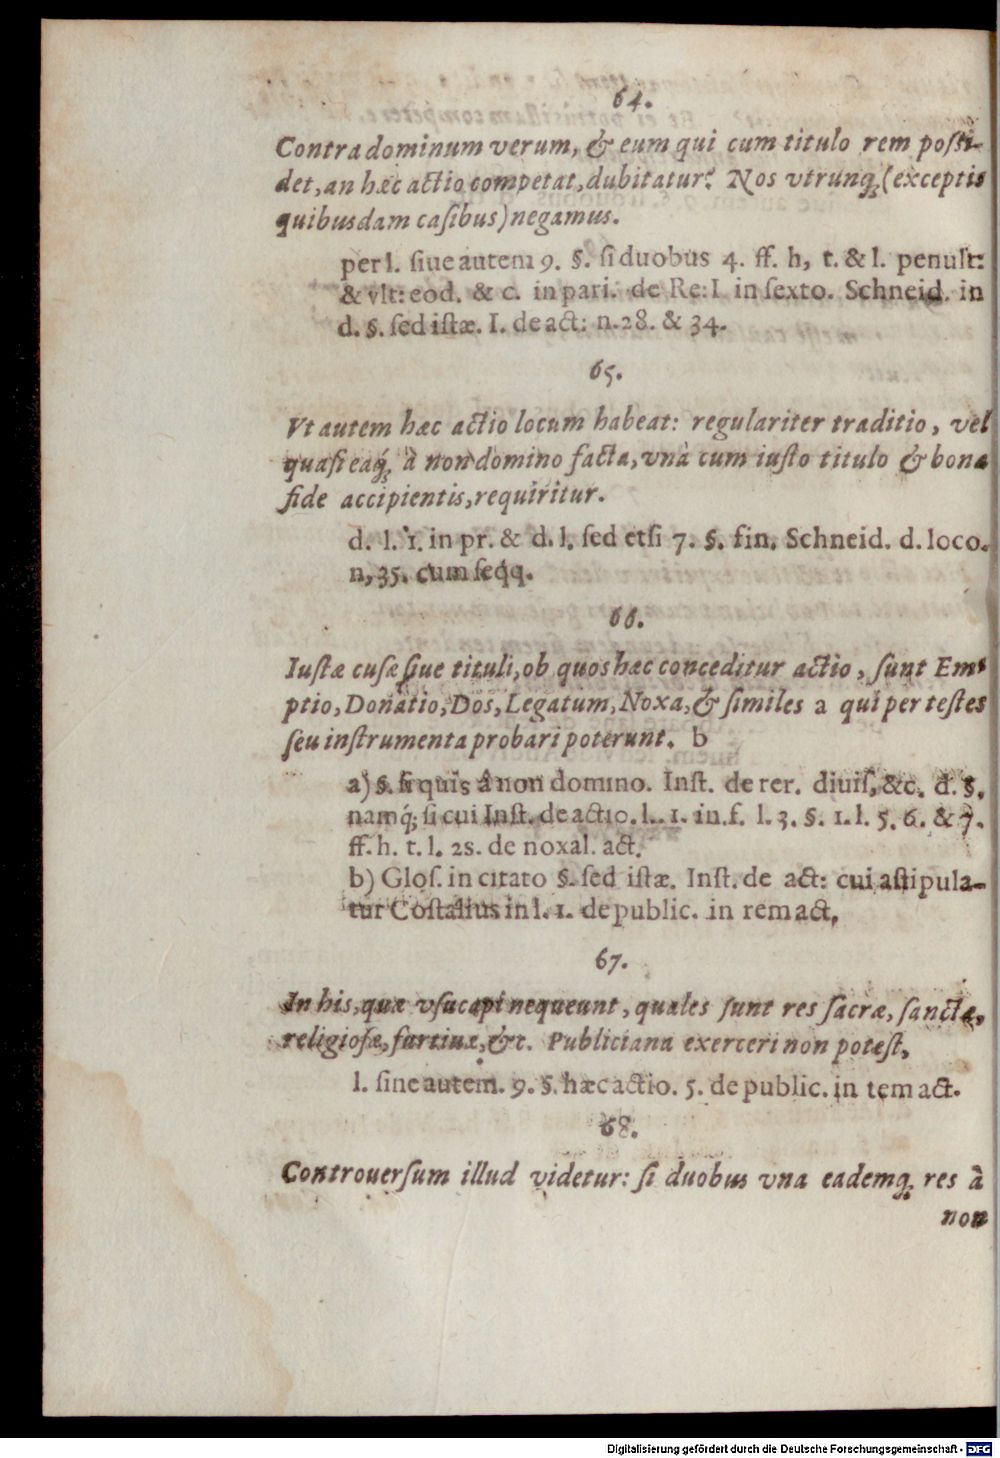 64.
Contra dominum verum, & eum qui cum titulo rem poſſi-
det, an hæc actio competat, dubitatur? Nos vtrunq́; (exceptis
quibusdam caſibus) negamus.
per l. ſiue autem 9. §. ſi duobus 4. ff. h, t. & l. penult:
& vlt: eod. & c. in pari. de Re: I. in ſexto. Schneid. in
d. §. ſed iſtæ. I. de act: n. 28. & 34.
65.
Vt autem hæc actio locum habeat: regulariter traditio, vel
quaſi eaq́; à non domino facta, vnà cum iuſto titulo & bona
fide accipientis, requiritur.
d. l. 1. in pr. & d. l. ſed etſi 7. §. fin. Schneid. d. loco.
n, 35. cum ſeqq.
66.
Iuſtæ cuſæ ſiue tituli, ob quos hæc conceditur actio, ſunt Em-
ptio, Donatio, Dos, Legatum, Noxa, & ſimiles a qui per teſtes
ſeu inſtrumenta probari poterunt. b
a) §. ſi quis â non domino. Inſt. de rer. diuiſ, &c. d. §.
namq́; ſi cui Inſt. de actio. l. 1. in. f. l. 3. §. 1. l. 5. 6. & 7.
ff. h. t. l. 2s. de noxal. act.
b) Gloſ. in citato §. ſed iſtæ. Inſt. de act: cui aſtipula-
tur Coſtalius in l. 1. de public. in rem act,
67.
In his, quæ vſucapi nequeunt, quales ſunt res ſacræ, ſanctæ,
religioſæ, furtiuæ, &c. Publiciana exerceri non poteſt,
l. ſine autem. 9. §. hæc actio. 5. de public. in tem act.
68.
Controuerſum illud videtur: ſi duobus vna eademq́; res à
non
Digitalisierung gefördert durch die Deutsche Forschungsgemeinschaft - DFG